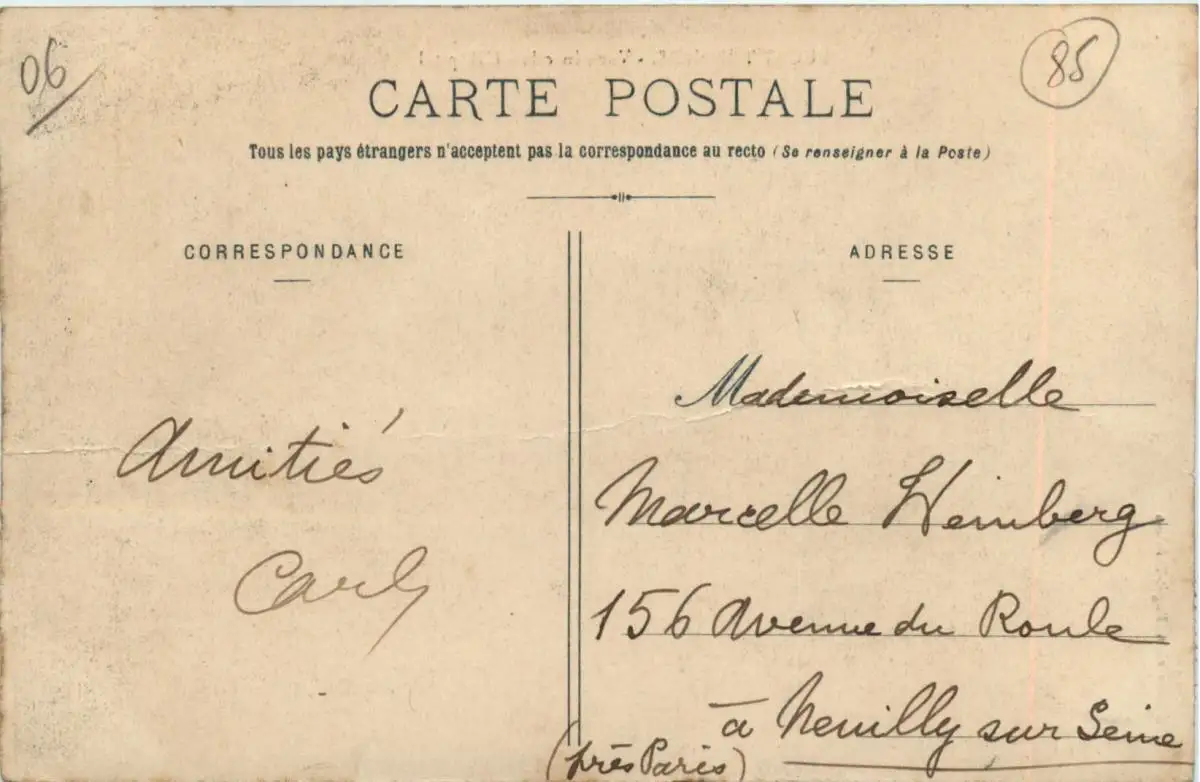 06
85
CARTE POSTALE
Tous les pays étrangers n'acceptent pas la correspondance au recto (Se renseigner à la Poste)
CORRESPONDANCE
ADRESSE
Amitiés
Carly
Mademoiselle
Marcelle Weinberg
156 Avenue du Roule
à Neuilly sur Seine
(près Paris)